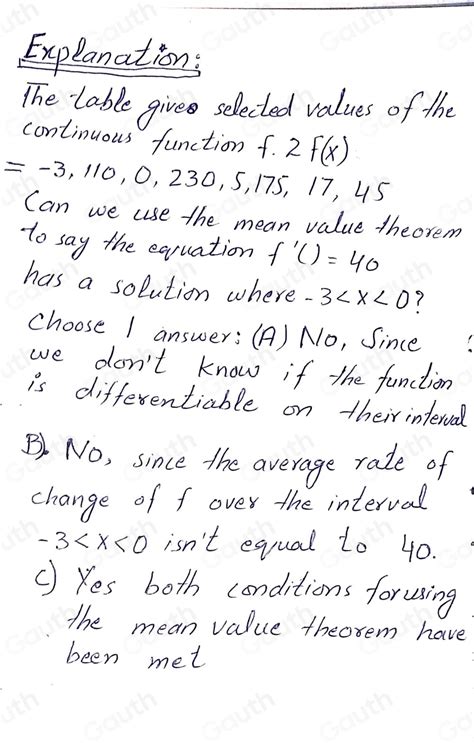 Explanation:
The table gives selected values of the
continuous function f. 2 f(x)
= -3, 110, 0, 230, 5, 175, 17, 45
Can we use the mean value theorem
to say the equation f'() = 40
has a solution where -3 < x < 0?
Choose 1 answer: (A) No, Since
we don't know if the function
is differentiable on their interval
B). No, since the average rate of
change of f over the interval
-3 < x < 0 isn't equal to 40.
C) Yes both conditions for using
the mean value theorem have
been met